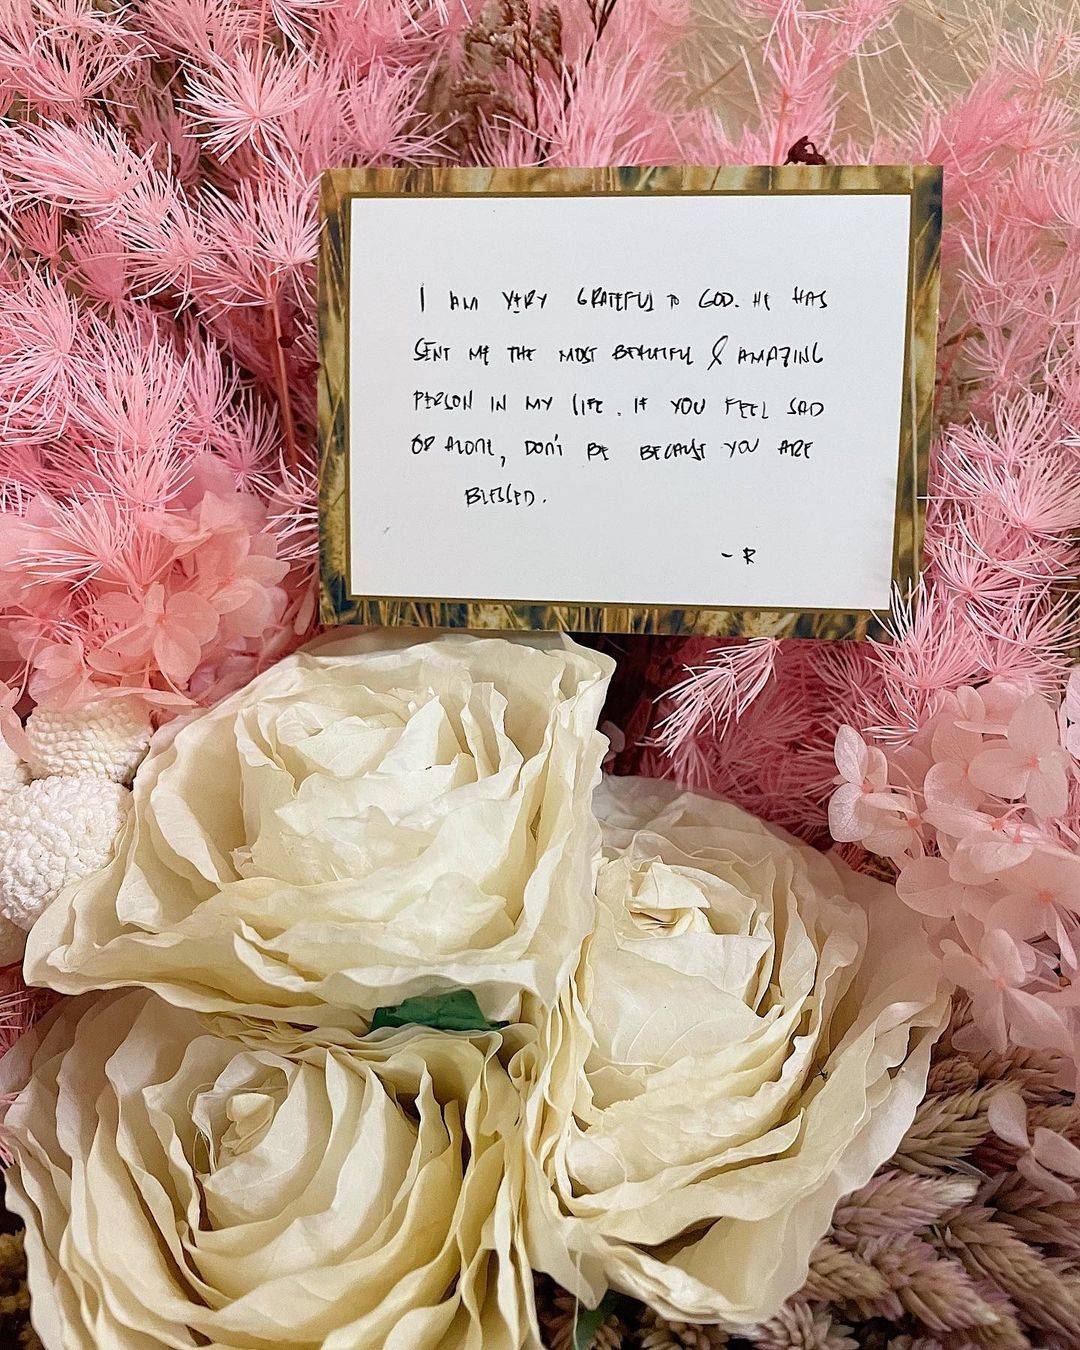 I AM VERY GRATEFUL TO GOD. HE HAS
SENT ME THE MOST BEAUTIFUL & AMAZING
PERSON IN MY LIFE. IF YOU FEEL SAD
OR ALONE, DON'T BE BECAUSE YOU ARE
BLESSED.
- R